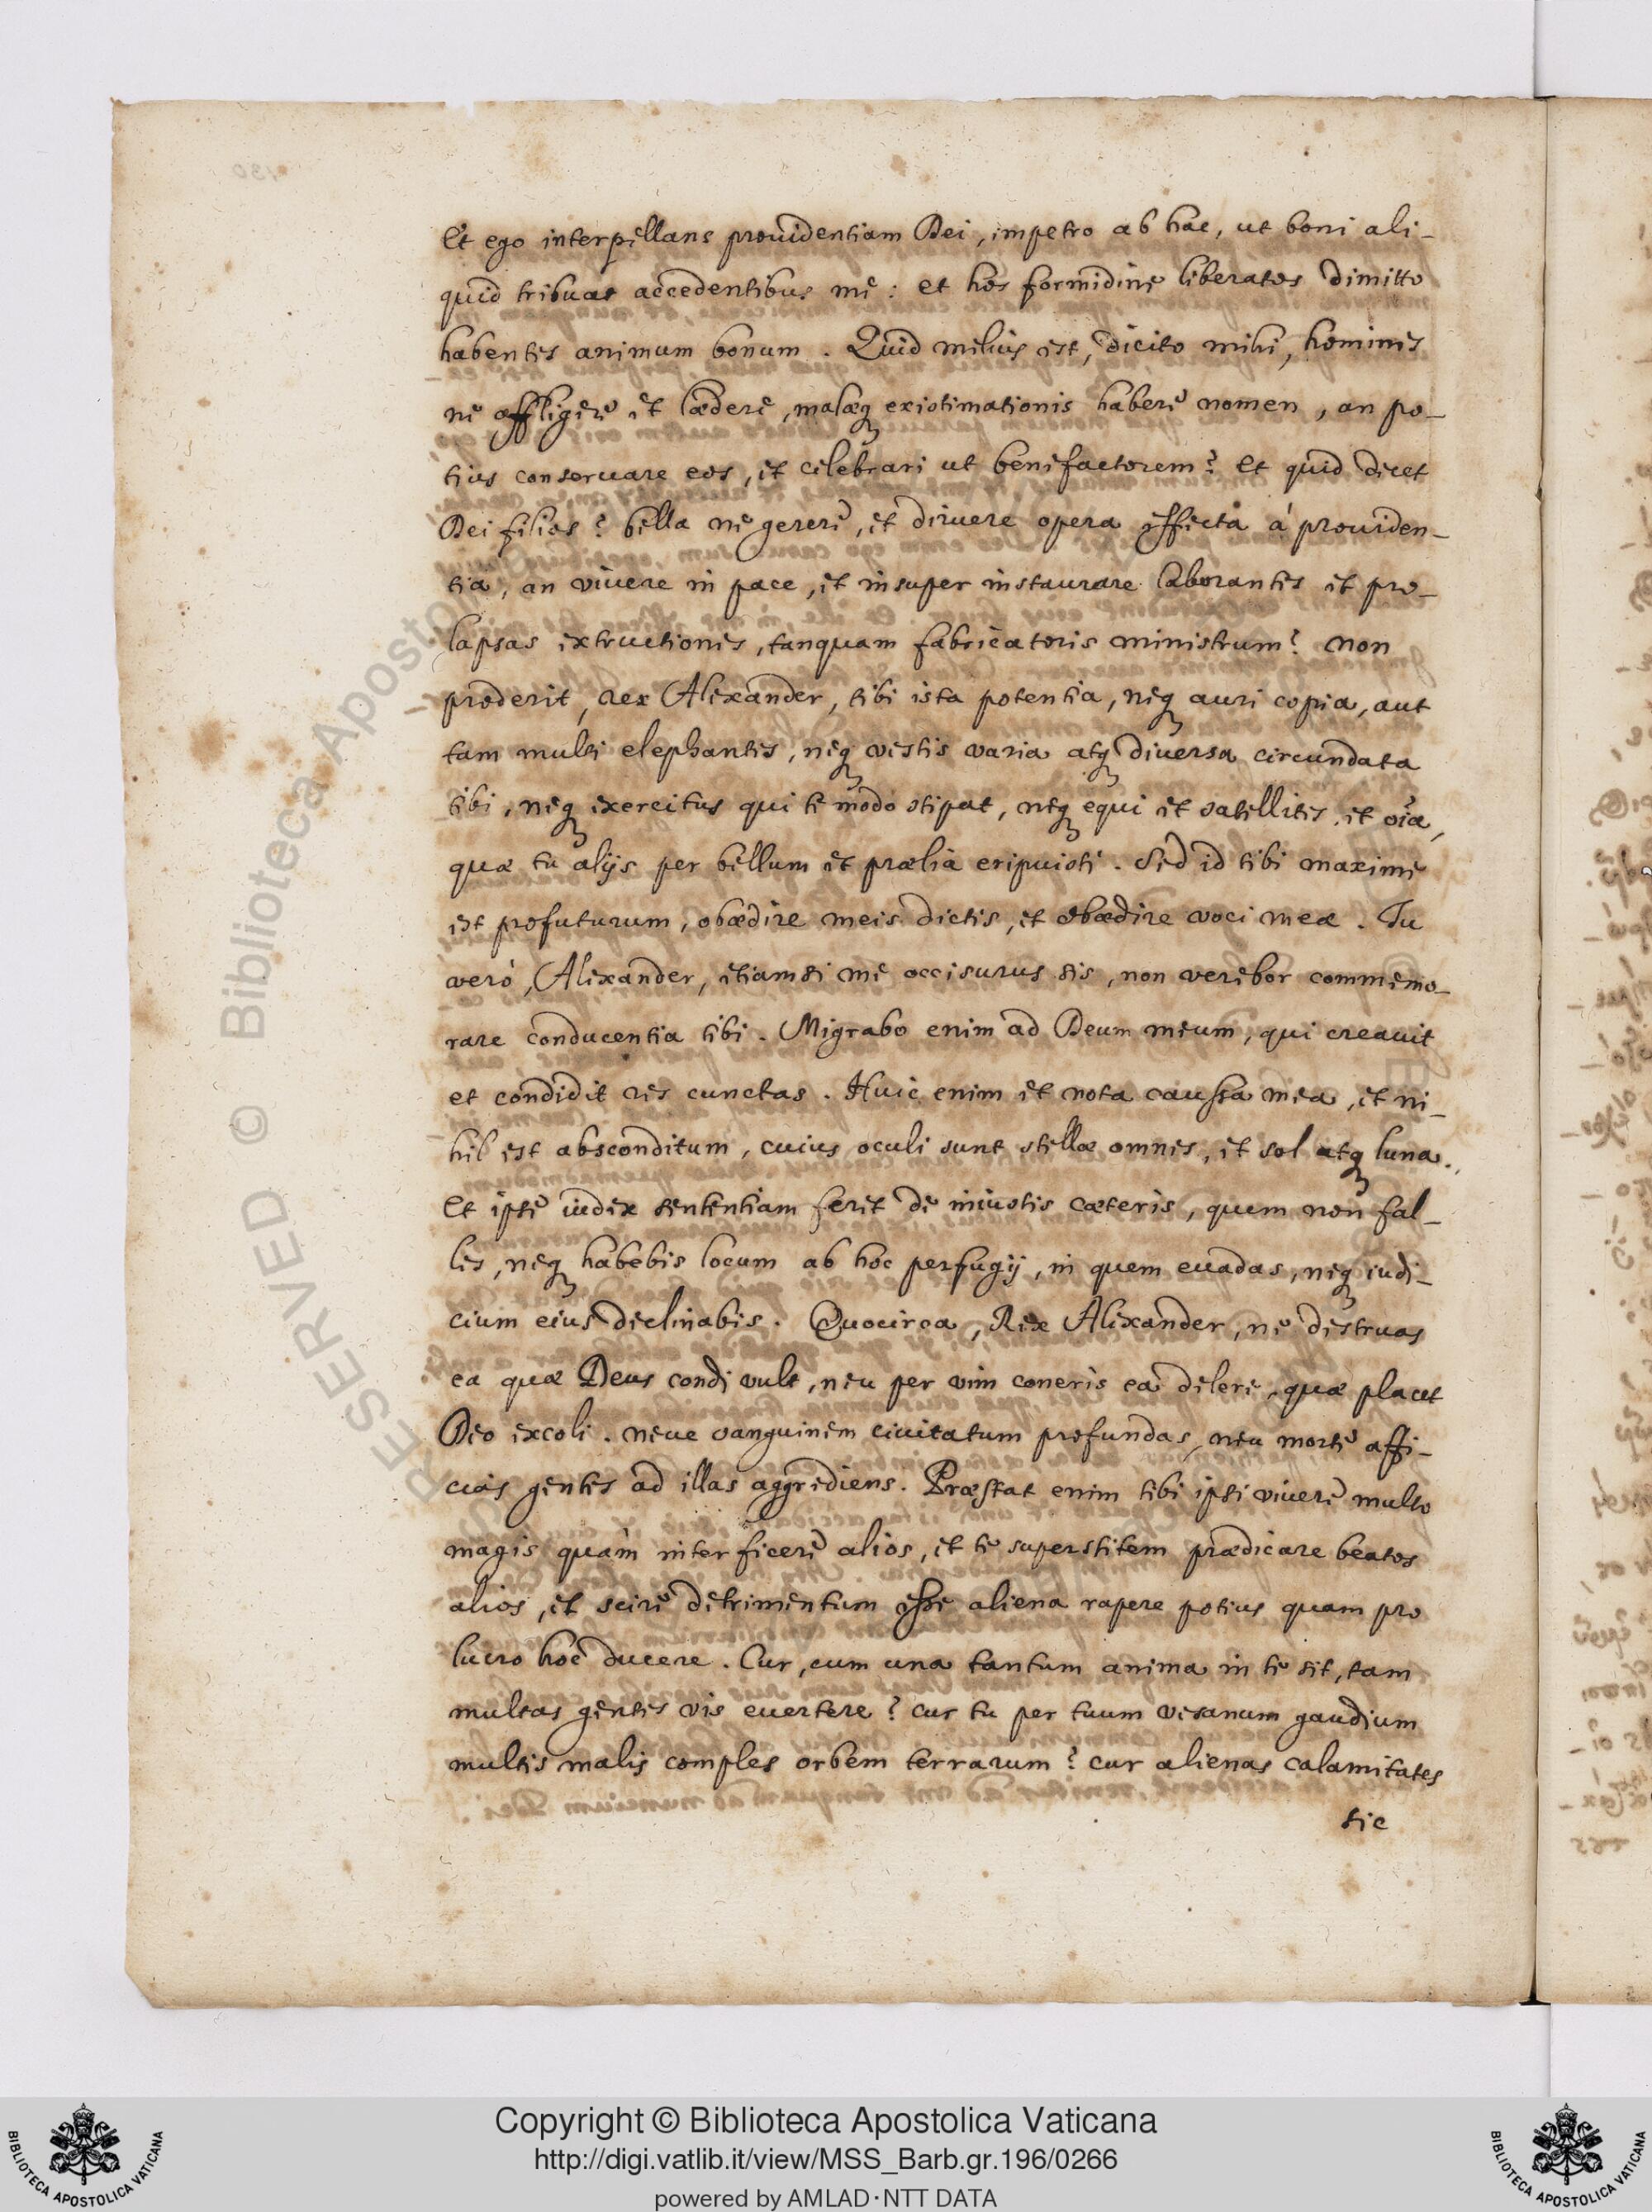 Et ego interpellans prouidentiam Dei, impetro ab hac, ut boni ali-
quid tribuat accedentibus me: et hos formidine liberatos dimitto
habentes animum bonum. Quid melius est, dicito mihi, homines
ne affligere et lædere, malæq existimationis habere nomen, an po-
tius conseruare eos, et celebrari ut benefactorem? Et quid dicet
Dei filios? bella ne gerere, et diruere opera effecta à prouiden-
tia, an viuere in pace, et insuper instaurare laborantes et pro-
lapsas extructiones, tanquam fabricatoris ministrum? Non
proderit, rex Alexander, tibi ista potentia, neq auri copia, aut
tam multi elephantes, neq vestis varia atq diuersa circundata
tibi, neq exercitus qui te modo stipat, neq equi et satellites, et oĩa,
quæ tu alijs per bellum et prælia eripuisti. Sed id tibi maxime
est profuturum, obædire meis dictis, et obædire voci meæ. Tu
verò, Alexander, etiamsi me occisurus sis, non verebor commemo-
rare conducentia tibi. Migrabo enim ad Deum meum, qui creauit
et condidit res cunctas. Huic enim et nota caussa mea, et ni-
hil est absconditum, cuius oculi sunt stellæ omnes, et sol atq luna.
Et ipse iudex sententiam feret de iniustis cæteris, quem non fal-
les, neq habebis locum ab hoc perfugij, in quem euadas, neq iudi-
cium eius declinabis. Quocirca, Rex Alexander, ne destruas
ea quæ Deus condi vult, neu per vim coneris ea delere, quæ placet
Deo excoli. neue sanguinem ciuitatum profundas, neu morte affi-
cias gentes ad illas aggrediens. Præstat enim tibi ipsi viuere multo
magis quàm interficere alios, et te superstitem prædicare beatos
alios, et scire detrimentum esse aliena rapere potius quam pro
lucro hoc ducere. Cur, cum una tantum anima in te sit, tam
multas gentes vis euertere? cur tu per tuum vesanum gaudium
multis malis comples orbem terrarum? cur alienas calamitates
sic
© Biblioteca Aposto
RESERVED
Copyright © Biblioteca Apostolica Vaticana
http://digi.vatlib.it/view/MSS_Barb.gr.196/0266
powered by AMLAD·NTT DATA
BIBLIOTECA APOSTOLICA VATICANA
BIBLIOTECA APOSTOLICA VATICANA